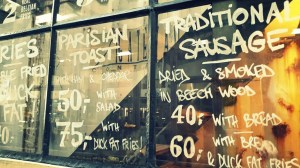 RIES
BLE FRIED
DUCK
FAT
PARISIAN
TOAST
50,- WITH
SALAD
75,- WITH
DUCK FAT FRIES!
TRADITIONAL
SAUSAGE
DRIED & SMOKED
IN BEECH WOOD
40,- WITH BREAD
60,- WITH BREAD
& DUCK FAT FRIES!